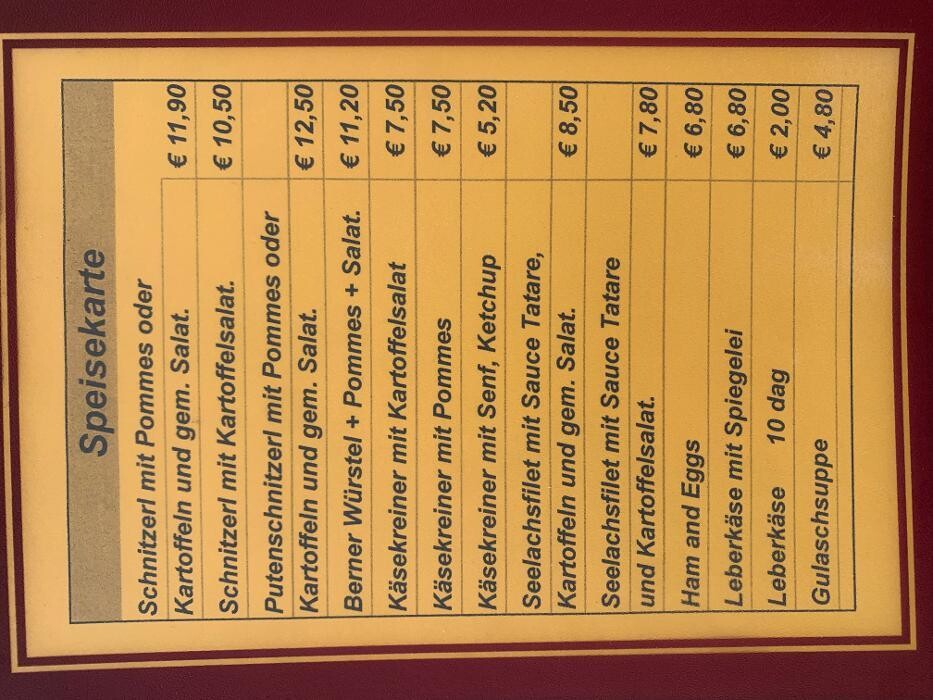 Speisekarte
Schnitzerl mit Pommes oder
Kartoffeln und gem. Salat. € 11,90
Schnitzerl mit Kartoffelsalat. € 10,50
Putenschnitzerl mit Pommes oder
Kartoffeln und gem. Salat. € 12,50
Berner Würstel + Pommes + Salat. € 11,20
Käsekreiner mit Kartoffelsalat € 7,50
Käsekreiner mit Pommes € 7,50
Käsekreiner mit Senf, Ketchup € 5,20
Seelachsfilet mit Sauce Tatare,
Kartoffeln und gem. Salat. € 8,50
Seelachsfilet mit Sauce Tatare
und Kartoffelsalat. € 7,80
Ham and Eggs € 6,80
Leberkäse mit Spiegelei € 6,80
Leberkäse 10 dag € 2,00
Gulaschsuppe € 4,80